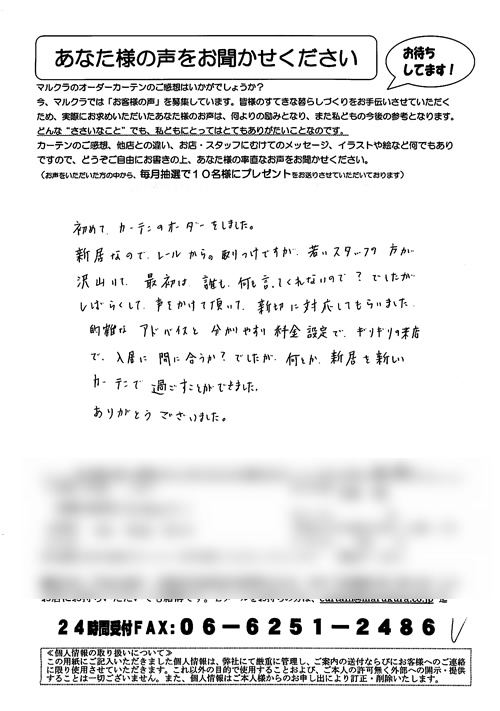 あなた様の声をお聞かせください
お待ち
してます!
マルクラのオーダーカーテンのご感想はいかがでしょうか?
今、マルクラでは「お客様の声」を募集しています。皆様のすてきな暮らしづくりをお手伝いさせていただく
ため、実際にお求めいただいたあなた様のお声は、何よりの励みとなり、また私どもの今後の参考となります。
どんな“ささいなこと”でも、私どもにとってはとてもありがたいことなのです。
カーテンのご感想、他店との違い、お店・スタッフにむけてのメッセージ、イラストや絵など何でもあり
ですので、どうぞご自由にお書きの上、あなた様の率直なお声をお聞かせください。
(お声をいただいた方の中から、毎月抽選で10名様にプレゼントをお送りさせていただいております)
初めて カーテンのオーダーをしました。
新居なので、レールからの取りつけですが、若いスタッフの方が
沢山いて、最初は、誰も、何も言ってくれないので?でしたが
しばらくして、声をかけて頂いて、親切に対応してもらいました。
的確な アドバイスと 分かりやすい料金設定で、ギリギリの来店
で、入居に 間に合うか?でしたが、何とか、新居を新しい
カーテンで 過ごすことができました。
ありがとう ございました。
24時間受付FAX:06-6251-2486
≪個人情報の取り扱いについて≫
この用紙にご記入いただきました個人情報は、弊社にて厳重に管理し、ご案内の送付ならびにお客様へのご連絡
に限り使用させていただきます。これ以外の目的で使用することおよび、ご本人の許可無く外部への開示・提供
することは一切ございません。また、個人情報はご本人様からのお申し出により訂正・削除いたします。